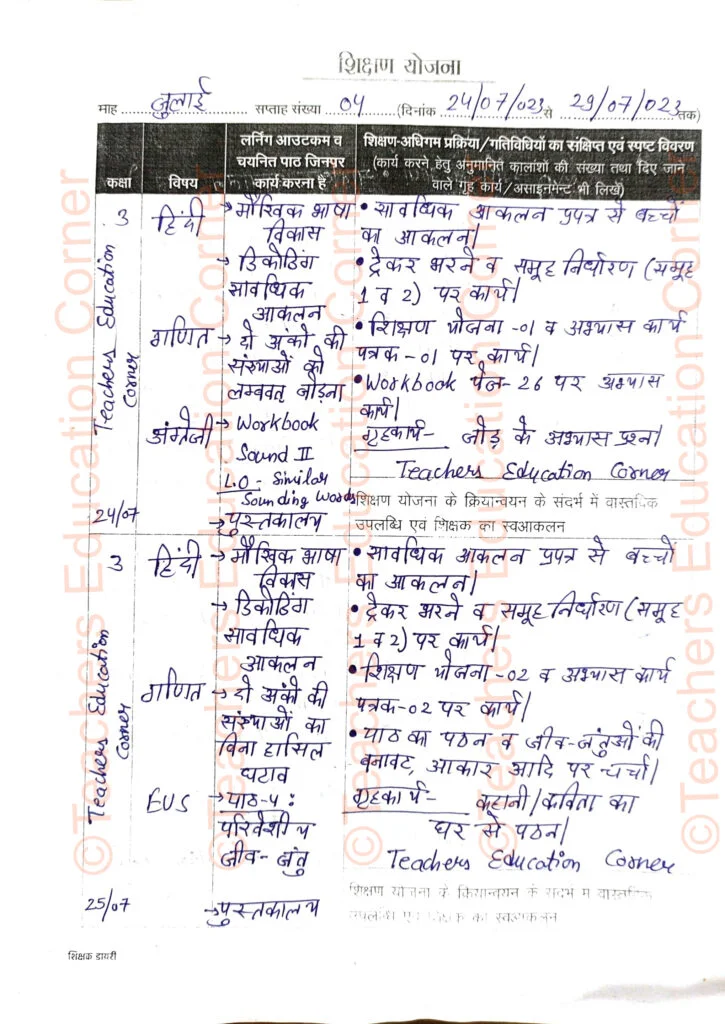 शिक्षण योजना
माह जुलाई सप्ताह संख्या 04 (दिनांक 24/07/023 से 29/07/023 तक)
कक्षा
विषय
लर्निंग आउटकम व
चयनित पाठ जिनपर
कार्य करना है
शिक्षण-अधिगम प्रक्रिया/गतिविधियों का संक्षिप्त एवं स्पष्ट विवरण
(कार्य करने हेतु अनुमानित कालांशों की संख्या तथा दिए जाने
वाले गृह कार्य/असाइनमेन्ट भी लिखें)
3
Teachers Education
Corner
24/07
हिंदी
गणित
अंग्रेजी
→ मौखिक भाषा
विकास
→ डिकोडिंग
सावधिक
आकलन
→ दो अंको की
संख्याओं को
लम्बवत् जोड़ना
→ Workbook
Sound II
L.O - Similar
Sounding Words
→ पुस्तकालय
• सावधिक आकलन प्रपत्र से बच्चों
का आकलन|
• ट्रेकर भरने व समूह निर्धारण (समूह
1 व 2) पर कार्य|
• शिक्षण योजना -01 व अभ्यास कार्य
पत्रक-01 पर कार्य|
• Workbook पेज- 26 पर अभ्यास
कार्य|
गृहकार्य- जोड़ के अभ्यास प्रश्न|
Teachers Education Corner
शिक्षण योजना के क्रियान्वयन के संदर्भ में वास्तविक
उपलब्धि एवं शिक्षक का स्वआकलन
3
Teachers Education
Corner
25/07
हिंदी
गणित
EVS
→ मौखिक भाषा
विकास
→ डिकोडिंग
सावधिक
आकलन
→ दो अंको की
संख्याओं का
बिना हासिल
घटाव
→ पाठ-4:
परिवेशीय
जीव- जंतु
→ पुस्तकालय
• सावधिक आकलन प्रपत्र से बच्चों
का आकलन|
• ट्रेकर भरने व समूह निर्धारण (समूह
1 व 2) पर कार्य|
• शिक्षण योजना -02 व अभ्यास कार्य
पत्रक-02 पर कार्य|
• पाठ का पठन व जीव-जंतुओं की
बनावट, आकार आदि पर चर्चा|
गृहकार्य- कहानी/कविता का
घर से पठन|
Teachers Education Corner
शिक्षण योजना के क्रियान्वयन के संदर्भ में वास्तविक
उपलब्धि एवं शिक्षक का स्वआकलन
शिक्षक डायरी
©Teachers Education Corner
©Teachers Education Corner
©Teachers Education Corner
©Teachers Education Corner